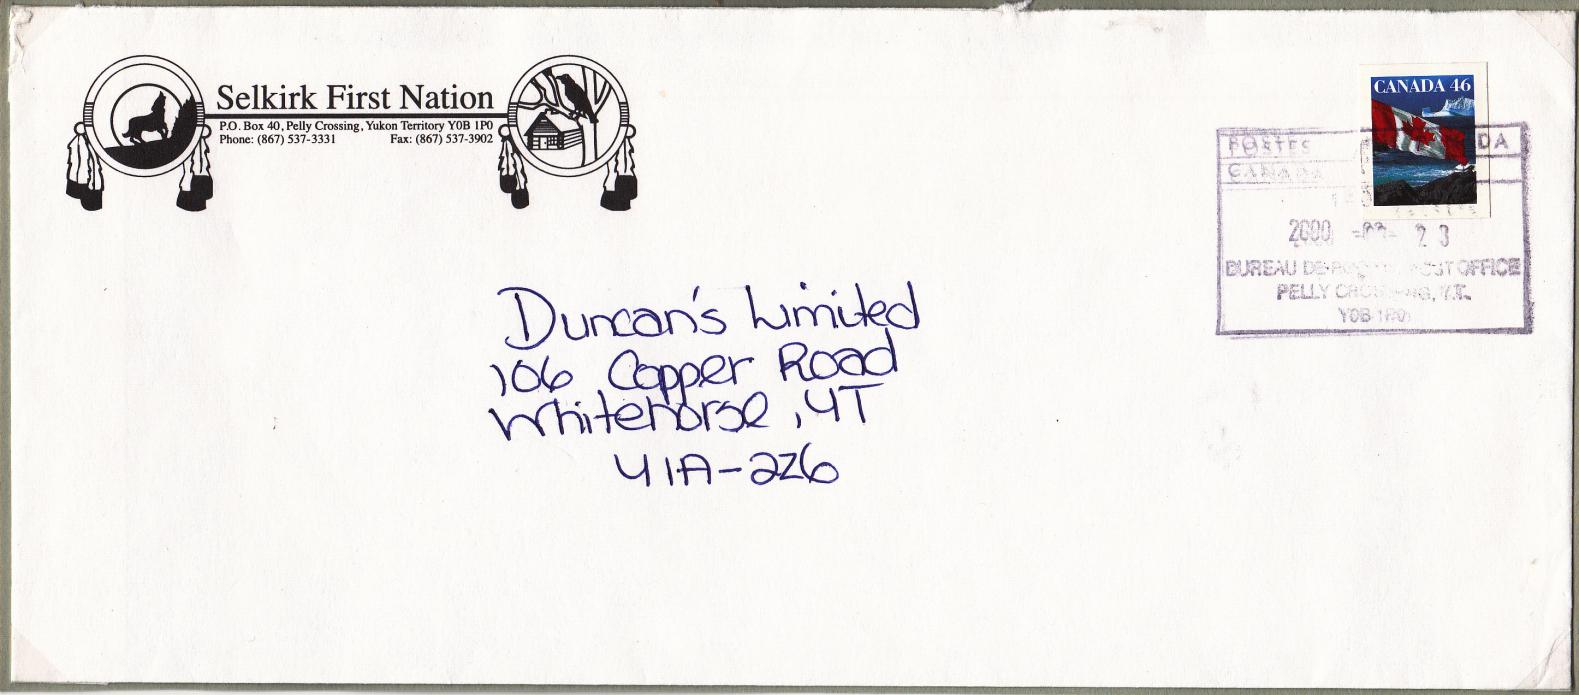 Selkirk First Nation
P.O. Box 40, Pelly Crossing, Yukon Territory Y0B 1P0
Phone: (867) 537-3331 Fax: (867) 537-3902
CANADA 46
POSTES
CANADA
2000 23
BUREAU DE POST OFFICE
PELLY CROSSING, Y.T.
Y0B 1P0
Duncan's Limited
106 Copper Road
Whitehorse, YT
Y1A-2Z6